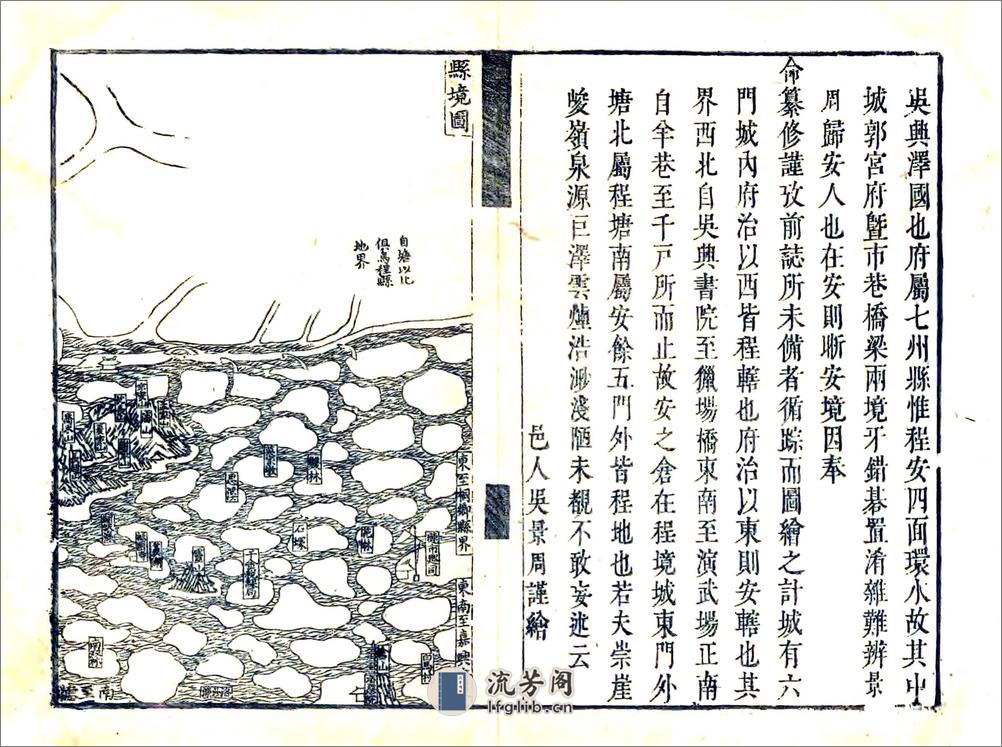 吳興澤國也府屬七州縣惟程安四面環水故其中
城郭宮府暨市巷橋梁兩境牙錯碁置淆雜難辨景
周歸安人也在安則晣安境因奉
命纂修謹攷前誌所未備者循踪而圖繪之計城有六
門城內府治以西皆程轄也府治以東則安轄也其
界西北自吳興書院至獵場橋東南至演武場正南
自牟巷至千戸所而止故安之倉在程境城東門外
塘北屬程塘南屬安餘五門外皆程地也若夫崇崖
峻嶺泉源巨澤雲煙浩渺淺陋未觀不敢妄述云
邑人吳景周謹繪
縣境圖
自塘以北
俱烏程縣
地界
東至桐鄉縣界
東南至嘉興
石塚
南至
流芳阁
lfglib.cn